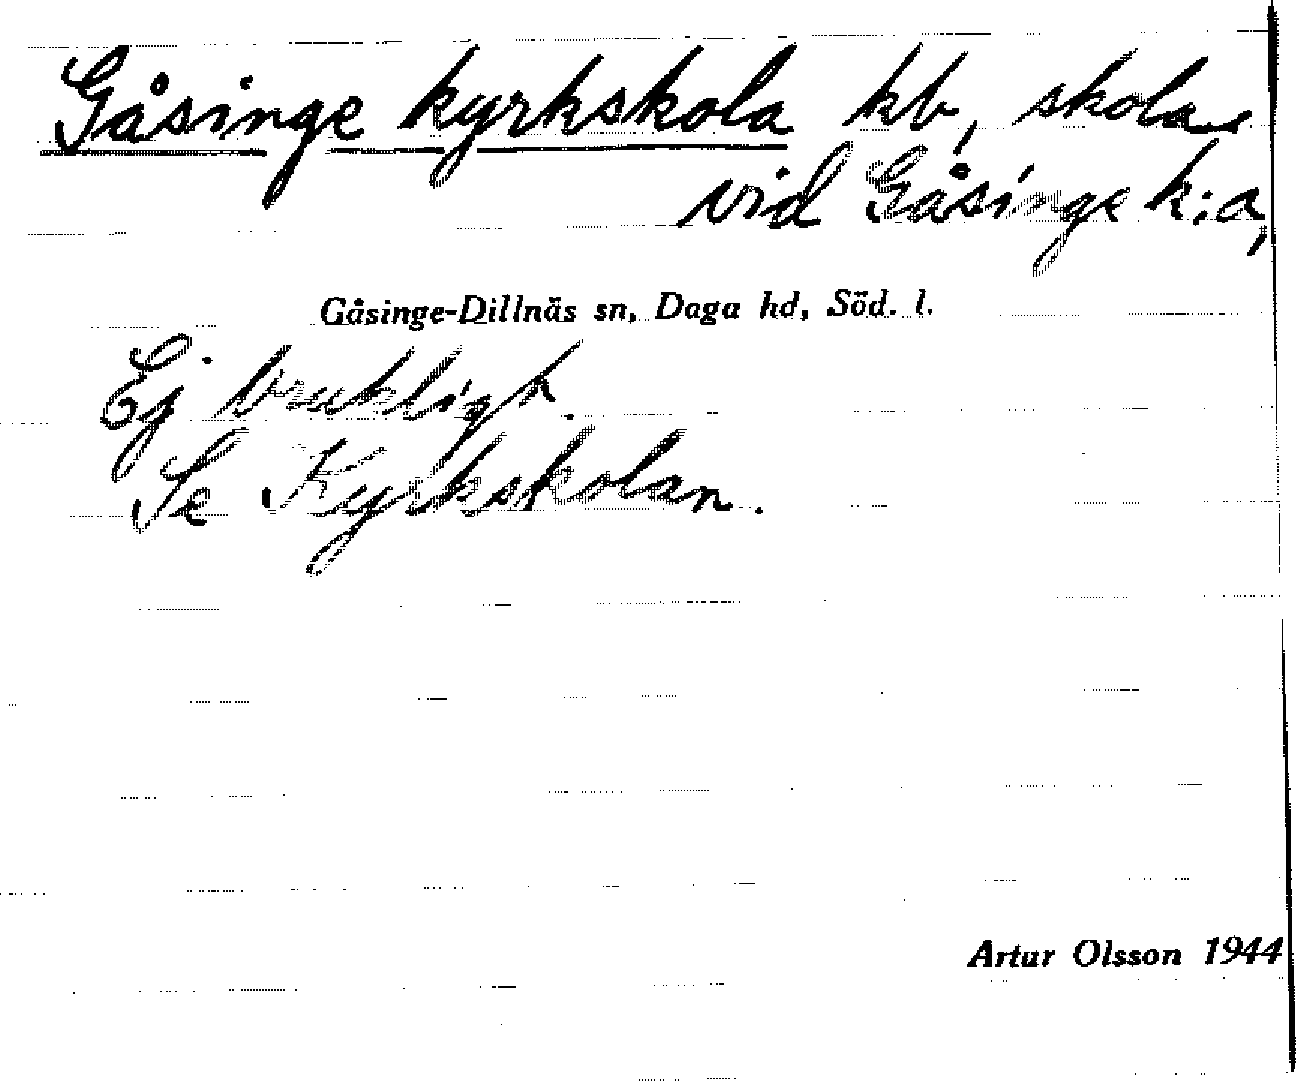 Gåsinge kyrkskola kb, skola
vid Gåsinge k:a,
Gåsinge-Dillnäs sn, Daga hd, Söd. l.
Ej brukligt.
Se Kyrkskolan.
Artur Olsson 1944